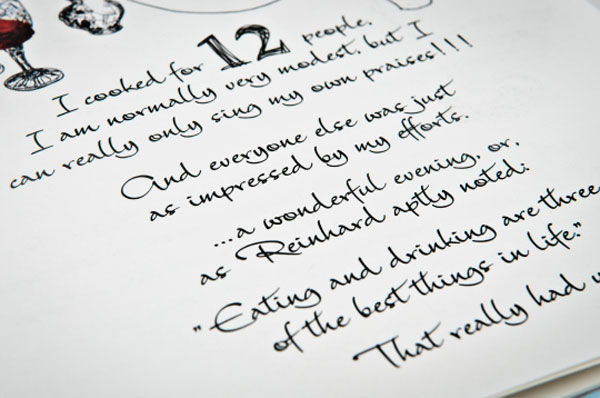 I cooked for 12 people.
I am normally very modest, but I
can really only sing my own praises!!!
And everyone else was just
as impressed by my efforts.
...a wonderful evening, or,
as Reinhard aptly noted:
"Eating and drinking are three
of the best things in life."
That really had